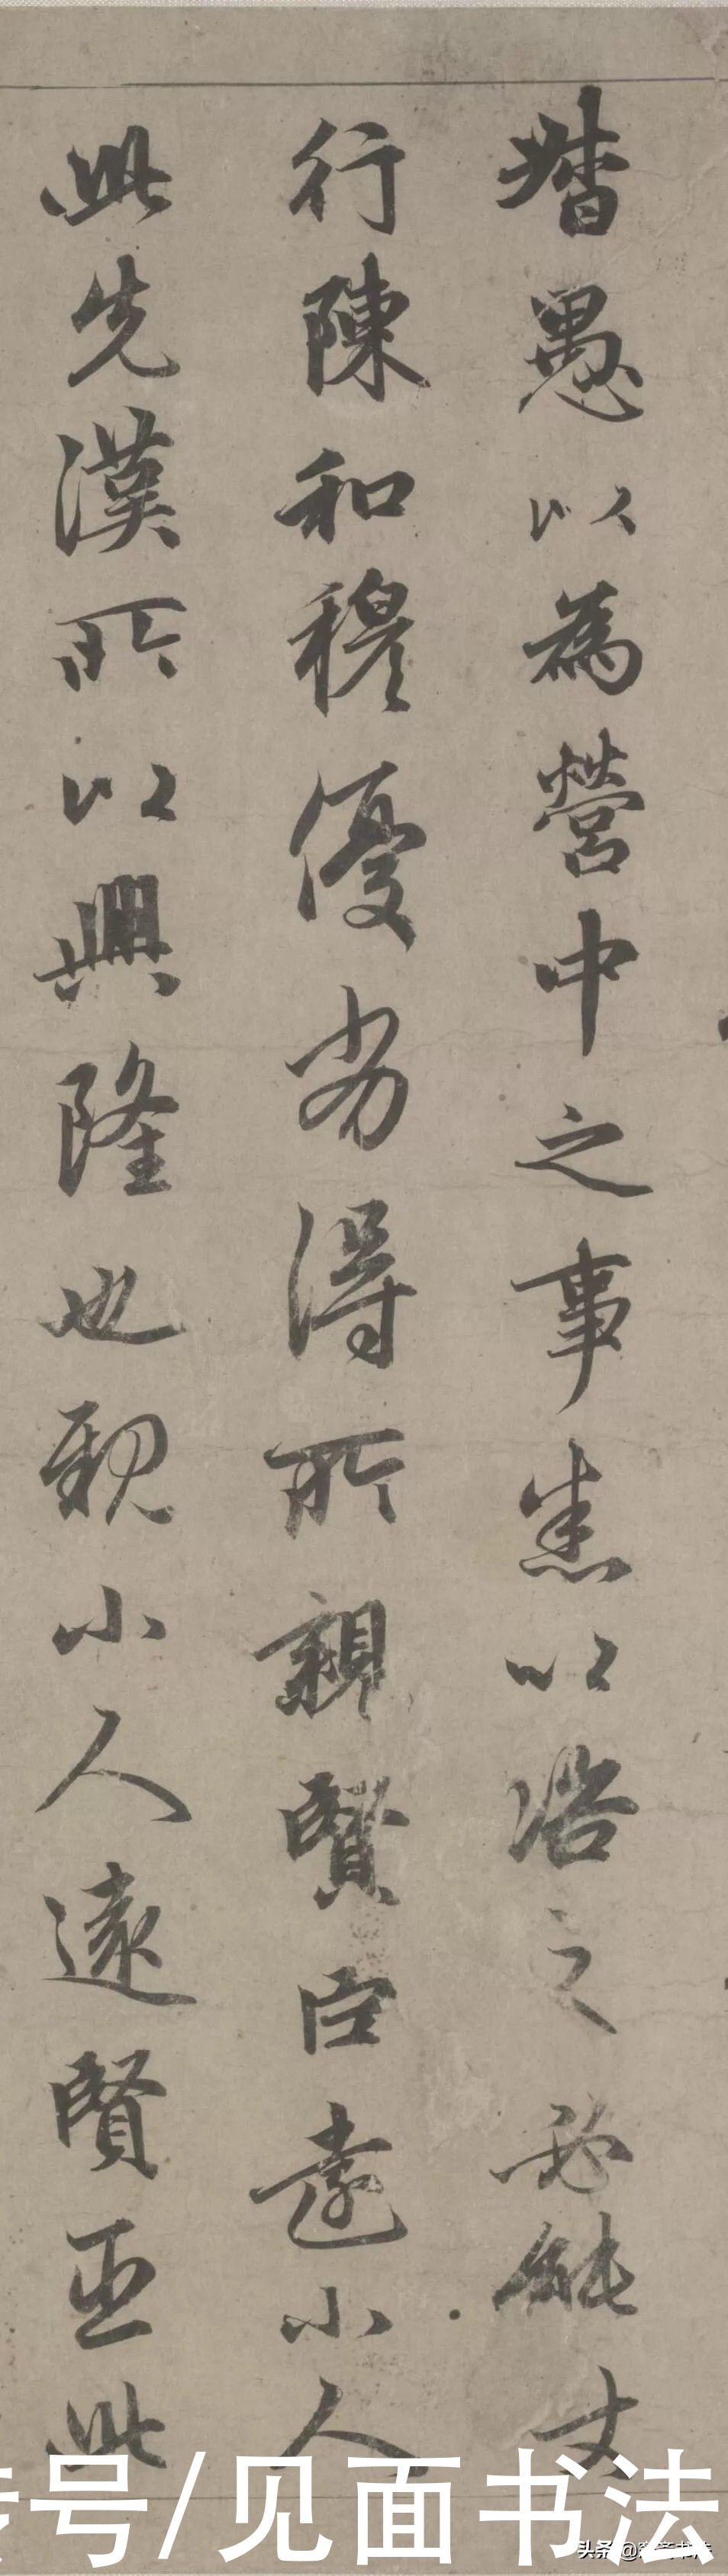 督愚以為營中之事悉以咨之必能使
行陳和穆優劣得所親賢臣遠小人
此先漢所以興隆也親小人遠賢臣此
号/见面书法
头条 @